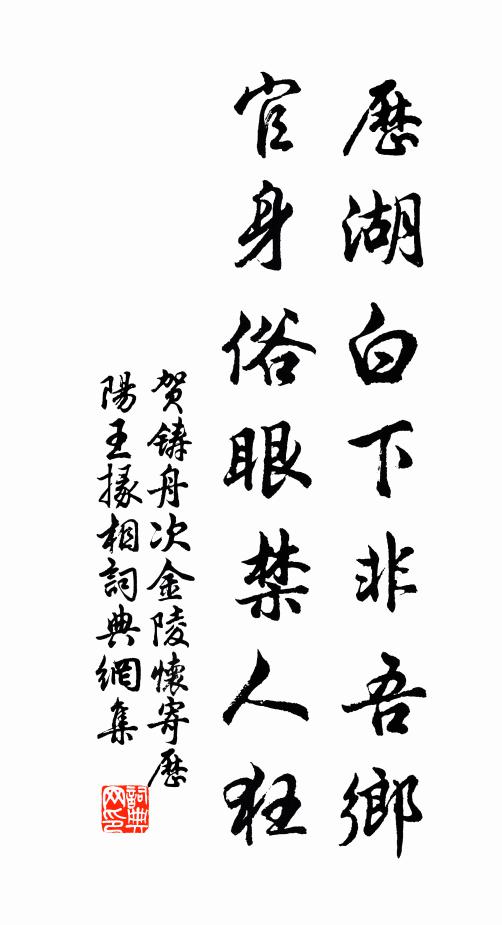 歷湖白下非吾鄉
官身俗眼禁人狂
賀鑄舟次金陵懷寄歷
陽王掾相詞典網集
詞典網印